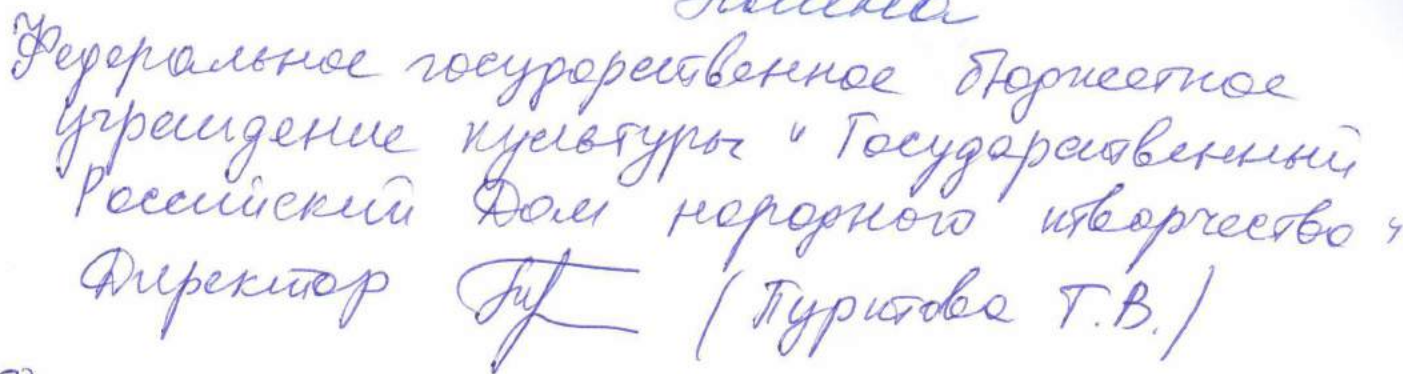 Федеральное государственное бюджетное
учреждение культуры "Государственный
Российский Дом народного творчества"
Директор (Пуртова Т.В.)